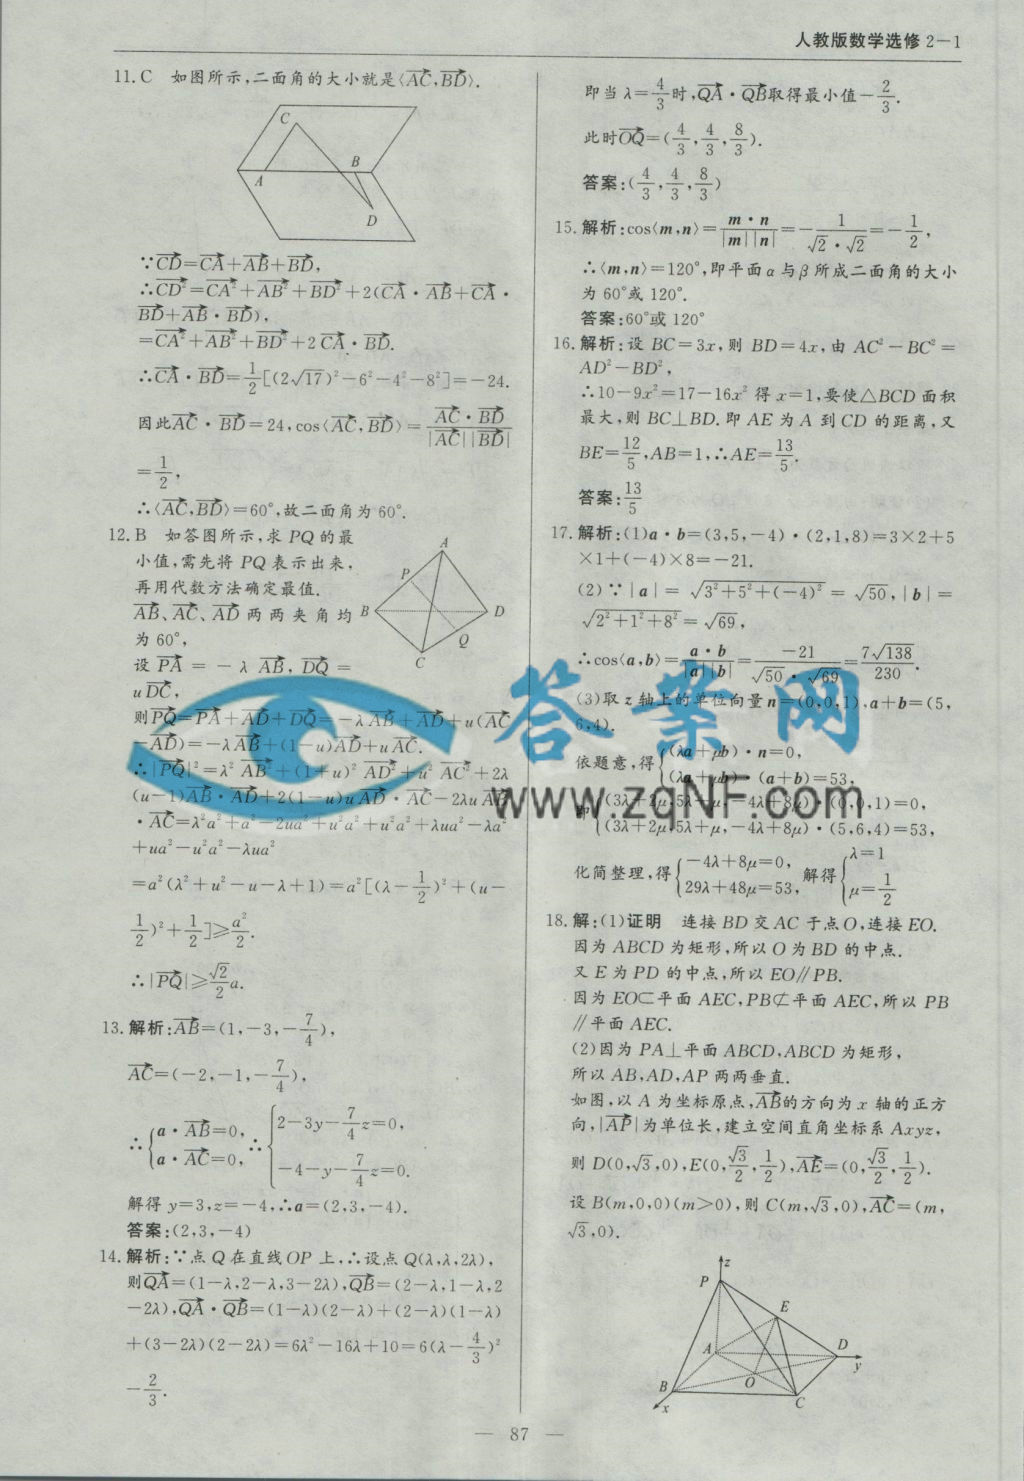 人教版数学选修2—1
11. C 如图所示,二面角的大小就是⟨AC→,BD→⟩.
C
A
B
D
∵CD→=CA→+AB→+BD→,
∴CD→²=CA→²+AB→²+BD→²+2(CA→·AB→+CA→·
BD→+AB→·BD→),
=CA→²+AB→²+BD→²+2CA→·BD→.
∴CA→·BD→=1/2[(2√17)²-6²-4²-8²]=-24.
因此AC→·BD→=24,cos⟨AC→,BD→⟩=AC→·BD→/|AC→||BD→|
=1/2,
∴⟨AC→,BD→⟩=60°,故二面角为60°.
12. B 如答图所示,求PQ的最
小值,需先将PQ表示出来,
再用代数方法确定最值.
AB→、AC→、AD→两两夹角均
为60°,
设PA→=-λAB→,DQ→=
uDC→,
A
P
B
D
Q
C
则PQ→=PA→+AD→+DQ→=-λAB→+AD→+u(AC→
-AD→)=-λAB→+(1-u)AD→+uAC→.
∴|PQ→|²=λ²AB→²+(1+u)²AD→²+u²AC→²+2λ
(u-1)AB→·AD→+2(1-u)uAD→·AC→-2λuAB→
·AC→=λ²a²+a²-2ua²+u²a²+u²a²+λua²-λa²
+ua²-u²a²-λua²
=a²(λ²+u²-u-λ+1)=a²[(λ-1/2)²+(u-
1/2)²+1/2]≥a²/2.
∴|PQ→|≥√2/2a.
13. 解析:AB→=(1,-3,-7/4),
AC→=(-2,-1,-7/4),
∴{a·AB→=0, a·AC→=0, ∴{2-3y-7/4z=0, -4-y-7/4z=0.
解得y=3,z=-4,∴a=(2,3,-4).
答案:(2,3,-4)
14. 解析:∵点Q在直线OP上,∴设点Q(λ,λ,2λ),
则QA→=(1-λ,2-λ,3-2λ),QB→=(2-λ,1-λ,2
-2λ),QA→·QB→=(1-λ)(2-λ)+(2-λ)(1-λ)
+(3-2λ)(2-2λ)=6λ²-16λ+10=6(λ-4/3)²
-2/3.
即当λ=4/3时,QA→·QB→取得最小值-2/3.
此时OQ→=(4/3,4/3,8/3).
答案:(4/3,4/3,8/3)
15. 解析:cos⟨m,n⟩=m·n/|m||n|=-1/√2·√2=-1/2,
∴⟨m,n⟩=120°,即平面α与β所成二面角的大小
为60°或120°.
答案:60°或120°
16. 解析:设BC=3x,则BD=4x,由AC²-BC²=
AD²-BD²,
∴10-9x²=17-16x²得x=1,要使△BCD面积
最大,则BC⊥BD.即AE为A到CD的距离,又
BE=12/5,AB=1,∴AE=13/5.
答案:13/5
17. 解析:(1)a·b=(3,5,-4)·(2,1,8)=3×2+5
×1+(-4)×8=-21.
(2)∵|a|=√3²+5²+(-4)²=√50,|b|=
√2²+1²+8²=√69,
∴cos⟨a,b⟩=a·b/|a||b|=-21/√50·√69=7√138/230.
(3)取z轴上的单位向量n=(0,0,1),a+b=(5,
6,4).
依题意,得{(λa+μb)·n=0, (λa+μb)·(a+b)=53,
即{(3λ+2μ,5λ+μ,-4λ+8μ)·(0,0,1)=0, (3λ+2μ,5λ+μ,-4λ+8μ)·(5,6,4)=53,
化简整理,得{-4λ+8μ=0, 29λ+48μ=53, 解得{λ=1 μ=1/2
18. 解:(1)证明 连接BD交AC于点O,连接EO.
因为ABCD为矩形,所以O为BD的中点.
又E为PD的中点,所以EO∥PB.
因为EO⊂平面AEC,PB⊄平面AEC,所以PB
∥平面AEC.
(2)因为PA⊥平面ABCD,ABCD为矩形,
所以AB,AD,AP两两垂直.
如图,以A为坐标原点,AB→的方向为x轴的正方
向,|AP→|为单位长,建立空间直角坐标系Axyz,
则D(0,√3,0),E(0,√3/2,1/2),AE→=(0,√3/2,1/2).
设B(m,0,0)(m>0),则C(m,√3,0),AC→=(m,
√3,0).
z
P
E
A
D
y
O
B
x
C
答案网
www.zqNF.com
— 87 —